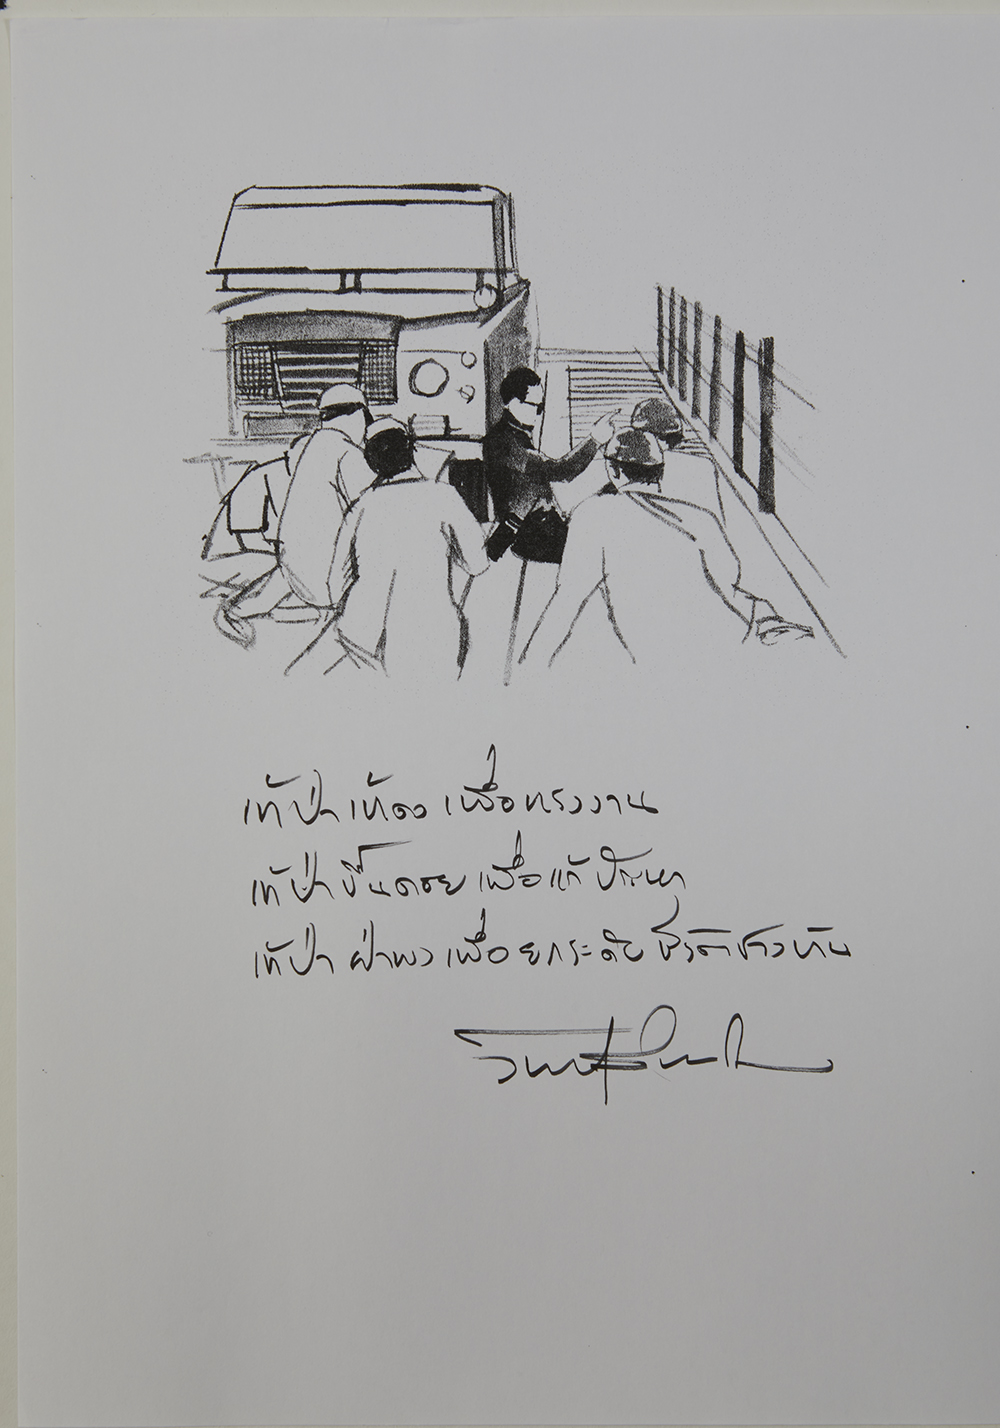 เข้าป่า เข้าดง เพื่อทรงงาน
เข้าป่า ขึ้นดอย เพื่อแก้ปัญหา
เข้าป่า ฝ่าพง เพื่อยกระดับชีวิตชาวบ้าน